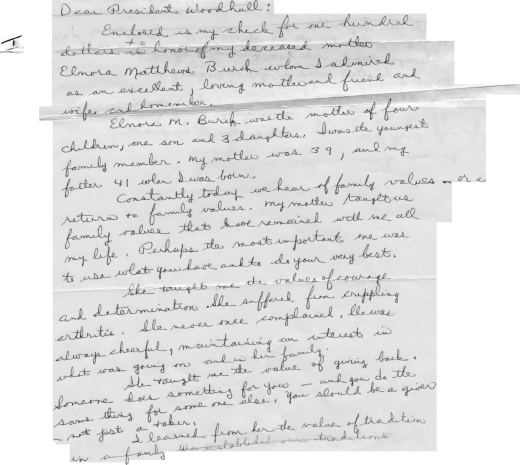 Dear President Woodhull:
Enclosed is my check for one hundred
dollars in honor of my deceased mother
Elnora Matthews Burch whom I admired
as an excellent, loving mother and friend and
wife and homemaker.
Elnora M. Burch was the mother of four
children, one son and 3 daughters. I was the youngest
family member. My mother was 39, and my
father 41 when I was born.
Constantly today we hear of family values - or a
return to family values. My mother taught us
family values that have remained with me all
my life. Perhaps the most important one was
to use what you have and to do your very best.
She taught me the values of courage
and determination. She suffered from crippling
arthritis. She never once complained. She was
always cheerful, maintaining an interest in
what was going on and in her family.
She taught me the value of giving back.
Someone does something for you - and you do the
same thing for some one else. You should be a giver
- not just a taker.
I learned from her the value of tradition
in a family. We established our traditions